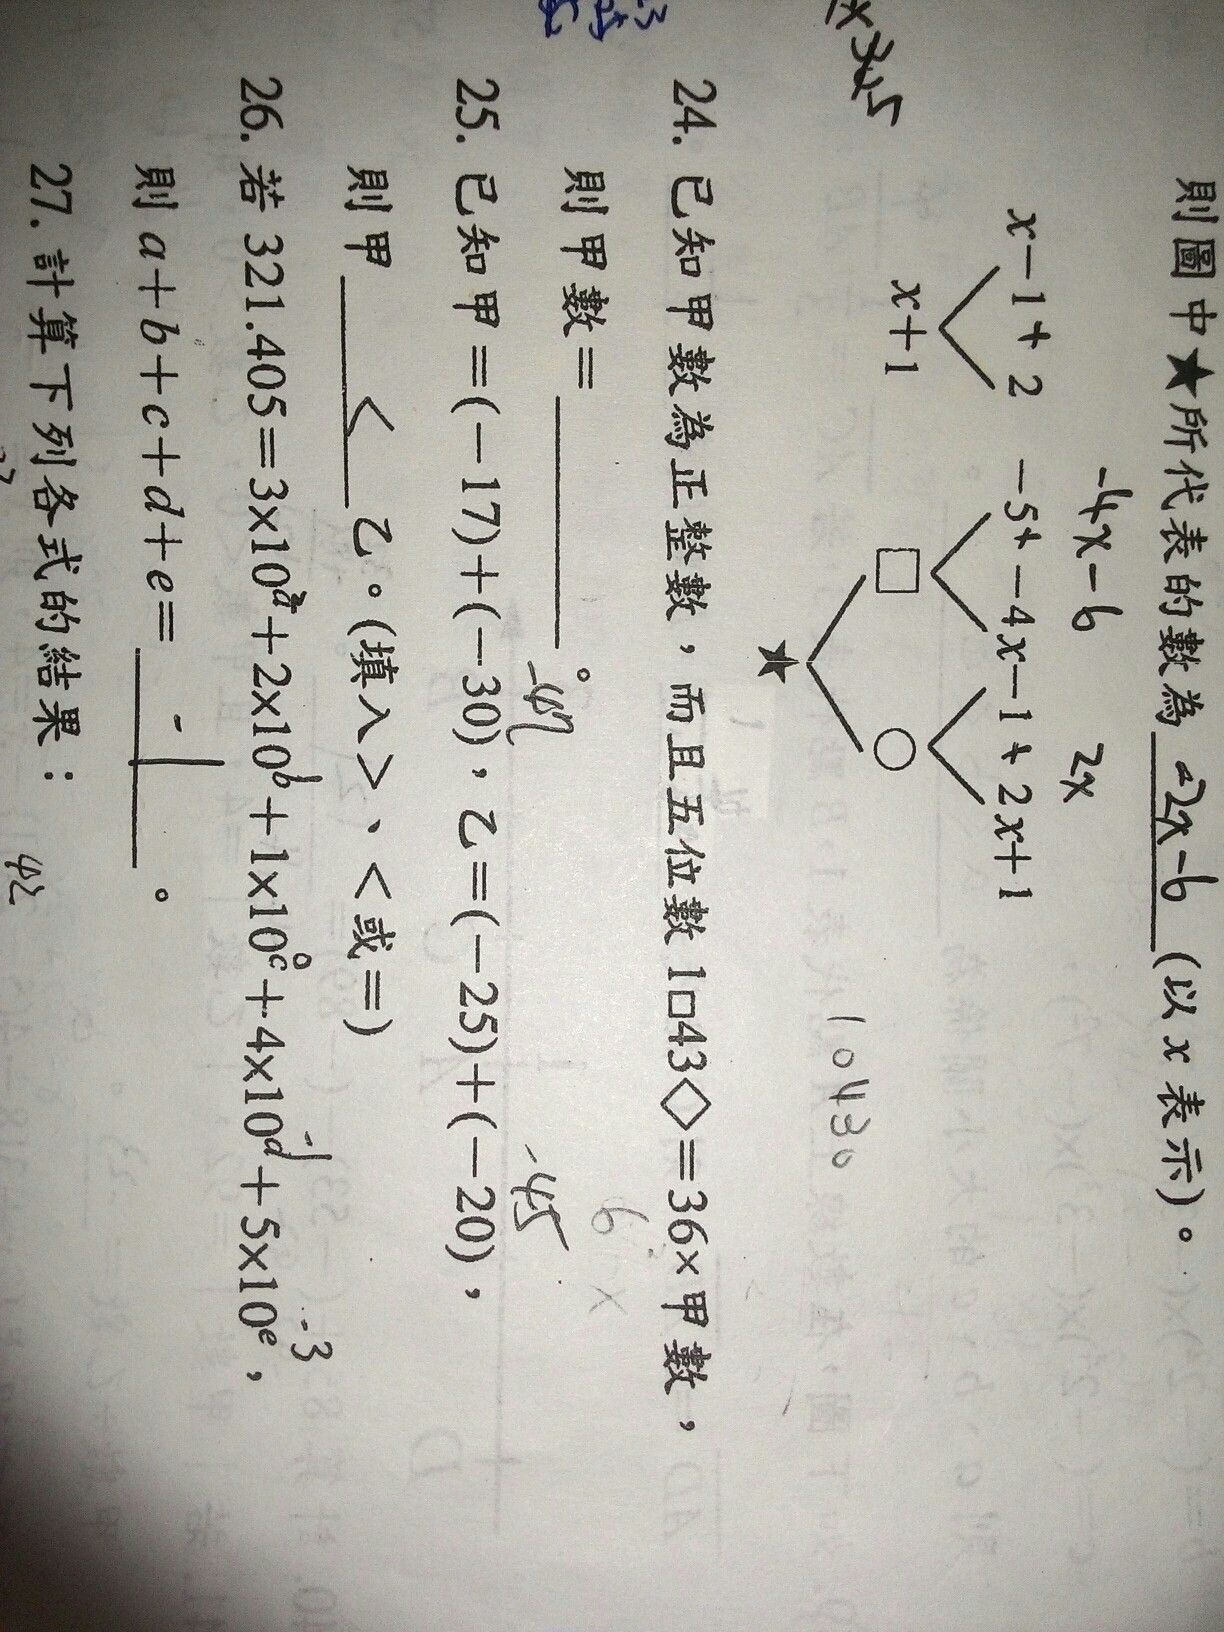 則圖中★所代表的數為 -2x-6 (以x表示)。
-4x-6 2x
x-1 + 2 -5 + -4x-1 + 2x+1
x+1 □ ○
★
x3
10430
24. 已知甲數為正整數，而且五位數1□43◇=36×甲數，
則甲數= 。 6 x
-47 -45
25. 已知甲=(-17)+(-30)，乙=(-25)+(-20)，
則甲 < 乙。(填入>、<或=)
2 1 0 -1 -3
26. 若321.405=3×10ᵃ+2×10ᵇ+1×10ᶜ+4×10ᵈ+5×10ᵉ，
則a+b+c+d+e= -1 。
27. 計算下列各式的結果：
42